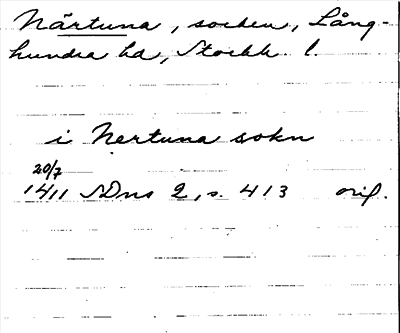 Närtuna, socken, Lång-
hundra hd, Stockh. l.
i Nertuna sokn
20/7
1411 SDns 2, s. 413 orig.